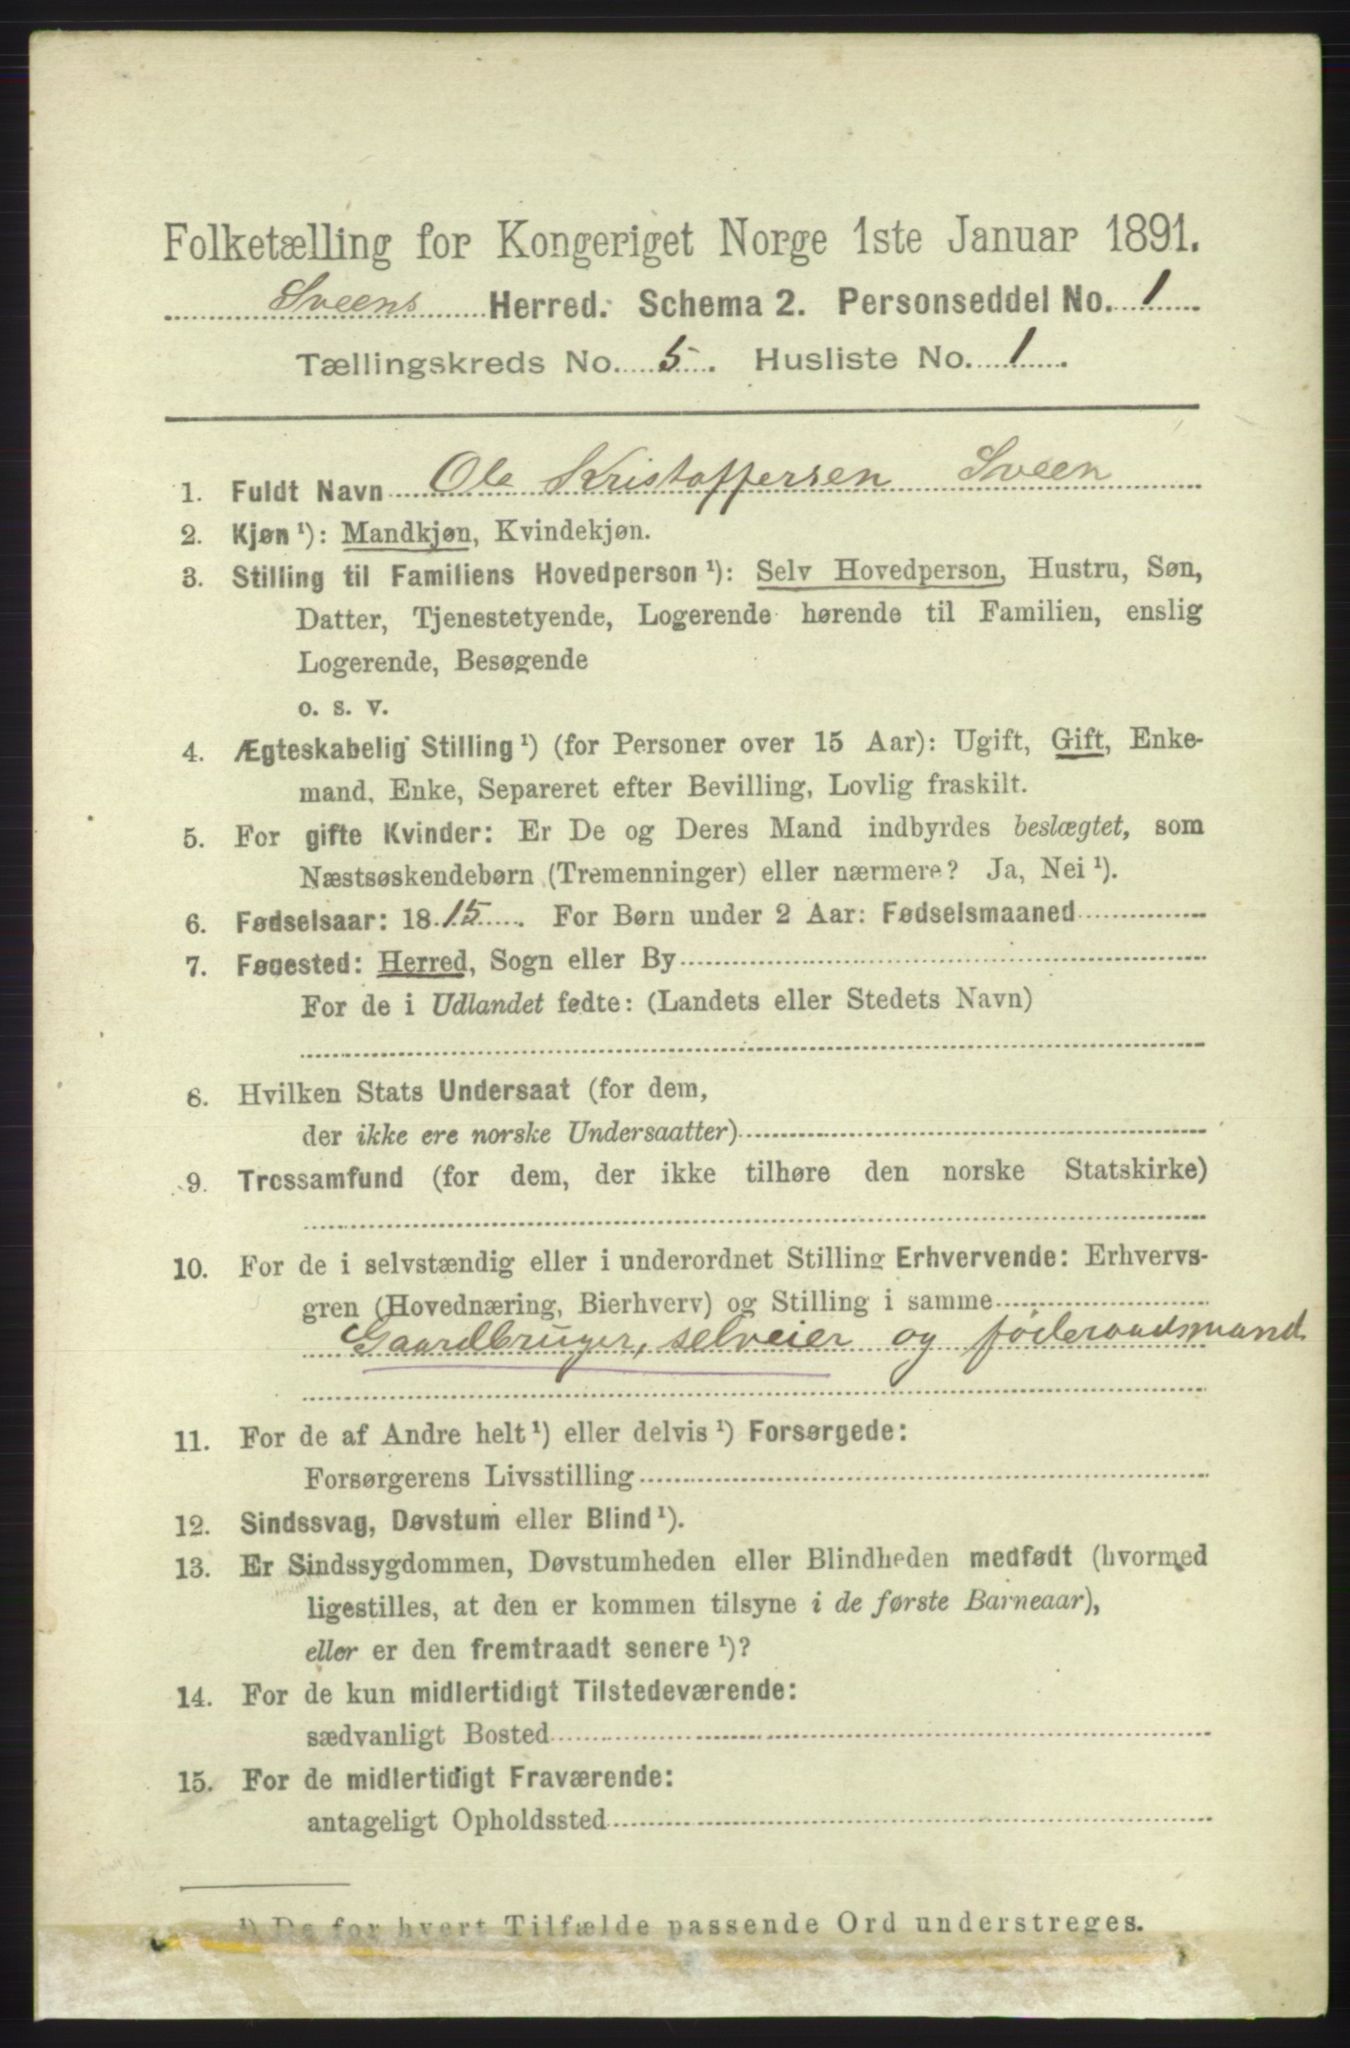 Folketælling for Kongeriget Norge 1ste Januar 1891.
Sveens Herred. Schema 2. Personseddel No. 1
Tællingskreds No. 5. Husliste No. 1.
1. Fuldt Navn Ole Kristoffersen Sveen
2. Kjøn ¹): Mandkjøn, Kvindekjøn.
3. Stilling til Familiens Hovedperson ¹): Selv Hovedperson, Hustru, Søn,
Datter, Tjenestetyende, Logerende hørende til Familien, enslig
Logerende, Besøgende
o. s. v.
4. Ægteskabelig Stilling ¹) (for Personer over 15 Aar): Ugift, Gift, Enke-
mand, Enke, Separeret efter Bevilling, Lovlig fraskilt.
5. For gifte Kvinder: Er De og Deres Mand indbyrdes beslægtet, som
Næstsøskendebørn (Tremenninger) eller nærmere? Ja, Nei ¹).
6. Fødselsaar: 1815. For Børn under 2 Aar: Fødselsmaaned
7. Føuested: Herred, Sogn eller By
For de i Udlandet fødte: (Landets eller Stedets Navn)
8. Hvilken Stats Undersaat (for dem,
der ikke ere norske Undersaatter)
9. Trossamfund (for dem, der ikke tilhøre den norske Statskirke)
10. For de i selvstændig eller i underordnet Stilling Erhvervende: Erhvervs-
gren (Hovednæring, Bierhverv) og Stilling i samme
Gaardbruger, selveier og föderaadsmand
11. For de af Andre helt ¹) eller delvis ¹) Forsørgede:
Forsørgerens Livsstilling
12. Sindssvag, Døvstum eller Blind ¹).
13. Er Sindssygdommen, Døvstumheden eller Blindheden medfødt (hvormed
ligestilles, at den er kommen tilsyne i de første Barneaar),
eller er den fremtraadt senere ¹)?
14. For de kun midlertidigt Tilstedeværende:
sædvanligt Bosted
15. For de midlertidigt Fraværende:
antageligt Opholdssted
¹) De for hvert Tilfælde passende Ord understreges.